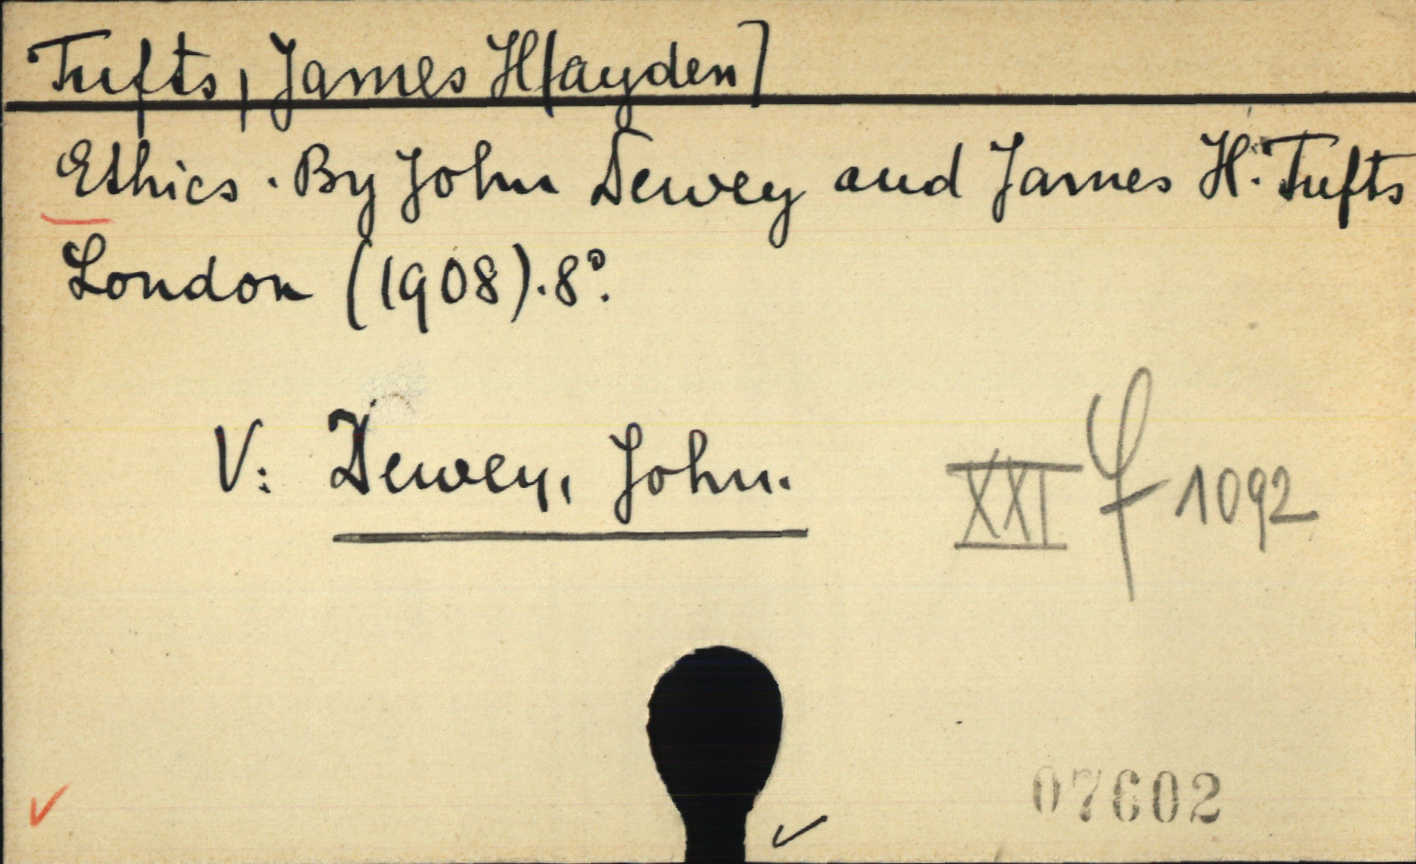 Tufts, James H[ayden]
Ethics. By John Dewey and James H. Tufts
London (1908). 8°.
V: Dewey, John.
XXI 1092
07602